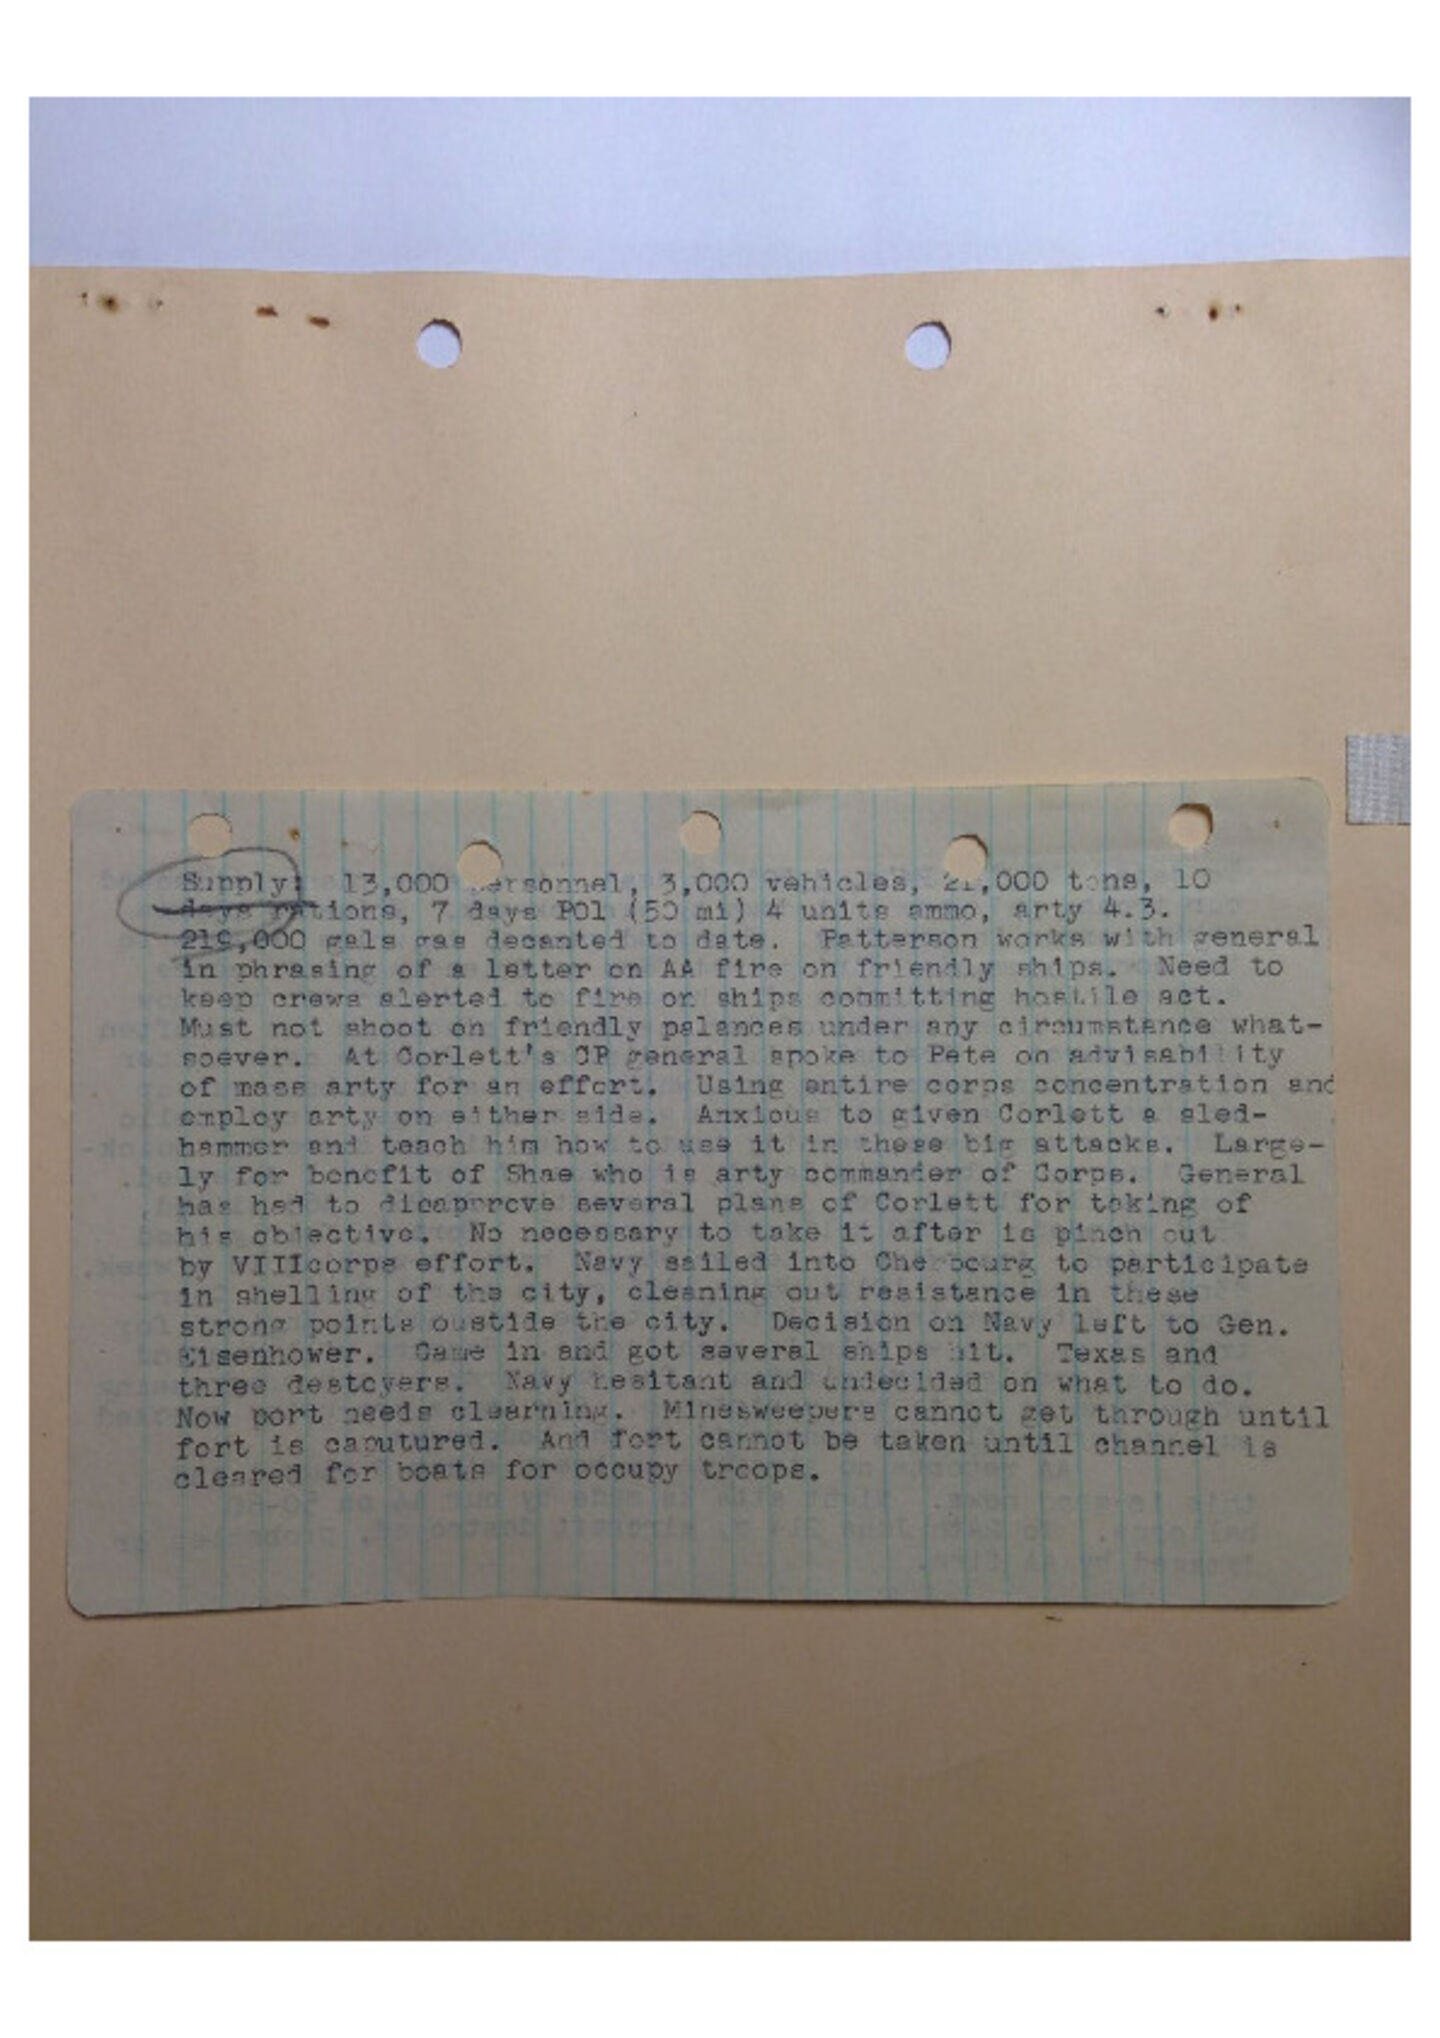 Supply: 13,000 personnel, 3,000 vehicles, 21,000 tons, 10
days rations, 7 days POl (50 mi) 4 units ammo, arty 4.3.
219,000 gals gas decanted to date. Patterson works with general
in phrasing of a letter on AA fire on friendly ships. Need to
keep crews alerted to fire on ships committing hostile act.
Must not shoot on friendly palances under any circumstance what-
soever. At Corlett's CP general spoke to Pete on advisability
of mass arty for an effort. Using entire corps concentration and
employ arty on either side. Anxious to given Corlett a sled-
hammer and teach him how to use it in these big attacks. Large-
ly for benefit of Shae who is arty commander of Corps. General
has had to dicapprove several plans of Corlett for taking of
his objective. No necessary to take it after is pinch out
by VIIIcorps effort. Navy sailed into Cherbourg to participate
in shelling of the city, cleaning out resistance in these
strong points oustide the city. Decision on Navy left to Gen.
Eisenhower. Came in and got several ships hit. Texas and
three destoyers. Navy hesitant and undecided on what to do.
Now port needs clearning. Minesweepers cannot get through until
fort is caputured. And fort cannot be taken until channel is
cleared for boats for occupy troops.